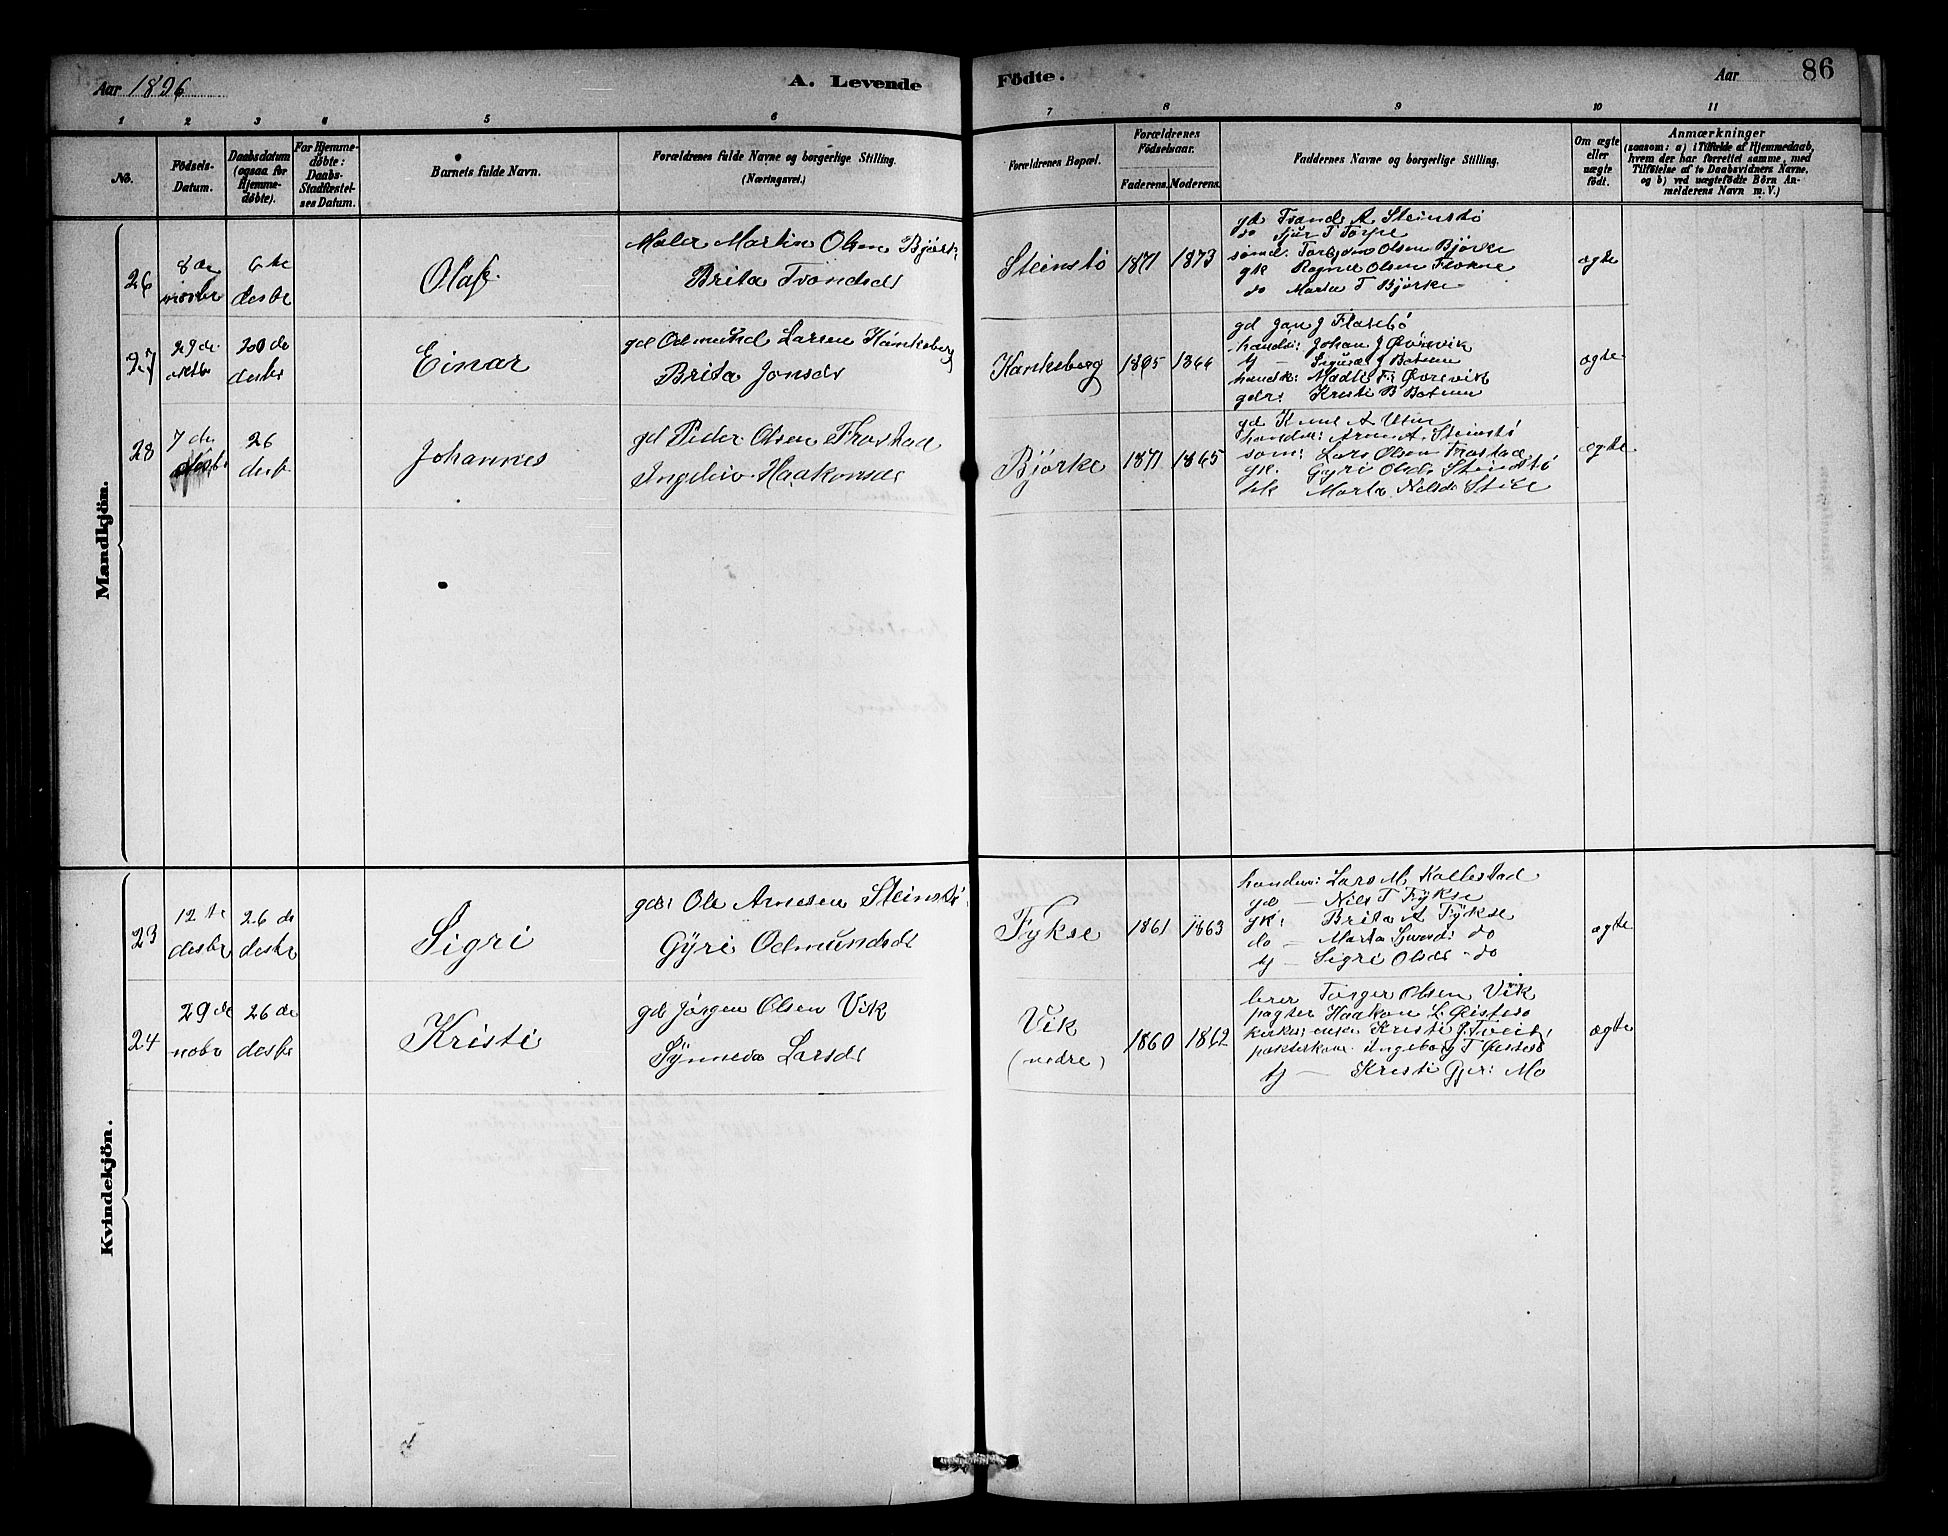 Aar 1896
A. Levende
Födte.
Aar
86
1 2 3 4 5 6 7 8 9 10 11
No.
Födsels-
Datum.
Daabsdatum
(ogsaa for
Hjemme-
døbte).
For Hjemme-
døbte:
Daabs-
Stadfæstel-
ses Datum.
Barnets fulde Navn.
Forældrenes fulde Navne og borgerlige Stilling.
(Næringsvei.)
Forældrenes Bopæl.
Forældrenes
Födselsaar.
Faderens.
Moderens.
Faddernes Navne og borgerlige Stilling.
Om ægte
eller
uægte
født.
Anmærkninger
(saasom: a) i Tilfælde af Hjemmedaab,
hvem der har forrettet samme, med
Tilføielse af to Daabsvidners Navne,
og b) ved uægtefödte Börn An-
melderens Navn m. V.)
Mandkjön.
26
8de
novbr
6te
desbr
Olaf
Maler Martin Olsen Bjørk
Brita Tvondsdr
Steinstö
1871
1873
gd Trond A Steinstö
do Sjur T Torpe
sömd. Torbjörn Olsen Bjørke
gk Ragna Olsen Flotne
do Marta T Bjørke
ægte
27
29de
oktbr
20de
desbr
Einar
gd Odmund Larsen Kanksberg
Brita Jonsdr
Kanksberg
1865
1866
gd Jon J Flotebö
handm: Johan J Övrevik
tj — Sigurd J Botnen
handk: Madli F: Övrevik
gdr: Kristi B Botnen
ægte
28
7de
desbr
26
desbr
Johannes
gd Peder Olsen Frostad
Ingeliv Haakonsdr
Bjørke
1871
1865
gd Knut A Utne
handm: Arne A. Steinstö
som: Lars Olsen Frostad
gk. Gyri Olsdr Steinstö
Marta Nelsdr
ægte
Kvindekjön.
23
12te
desbr
26de
desbr
Sigri
gdr Ole Arnesen Steinstö
Gÿri Odmundsdr
Fykse
1861
1863
handm: Lars M. Kallestad
gd — Nils T Fÿkse
gk: Brita A Fÿkse
do — Marta Sjursd: do
tj — Sigri Olsdr do
ægte
24
29de
nobr
26de
desbr
Kristi
gd Jörgen Olsen Vik
Sÿnneva Larsdr
Vik
(nedre)
1860
1862
lærer Torger Olsen Vik
pagter Haakon L. Östesö
Kristi J. Tveit
Ingeborg T Östesö
tj — Kristi Gjer: Mo
ægte